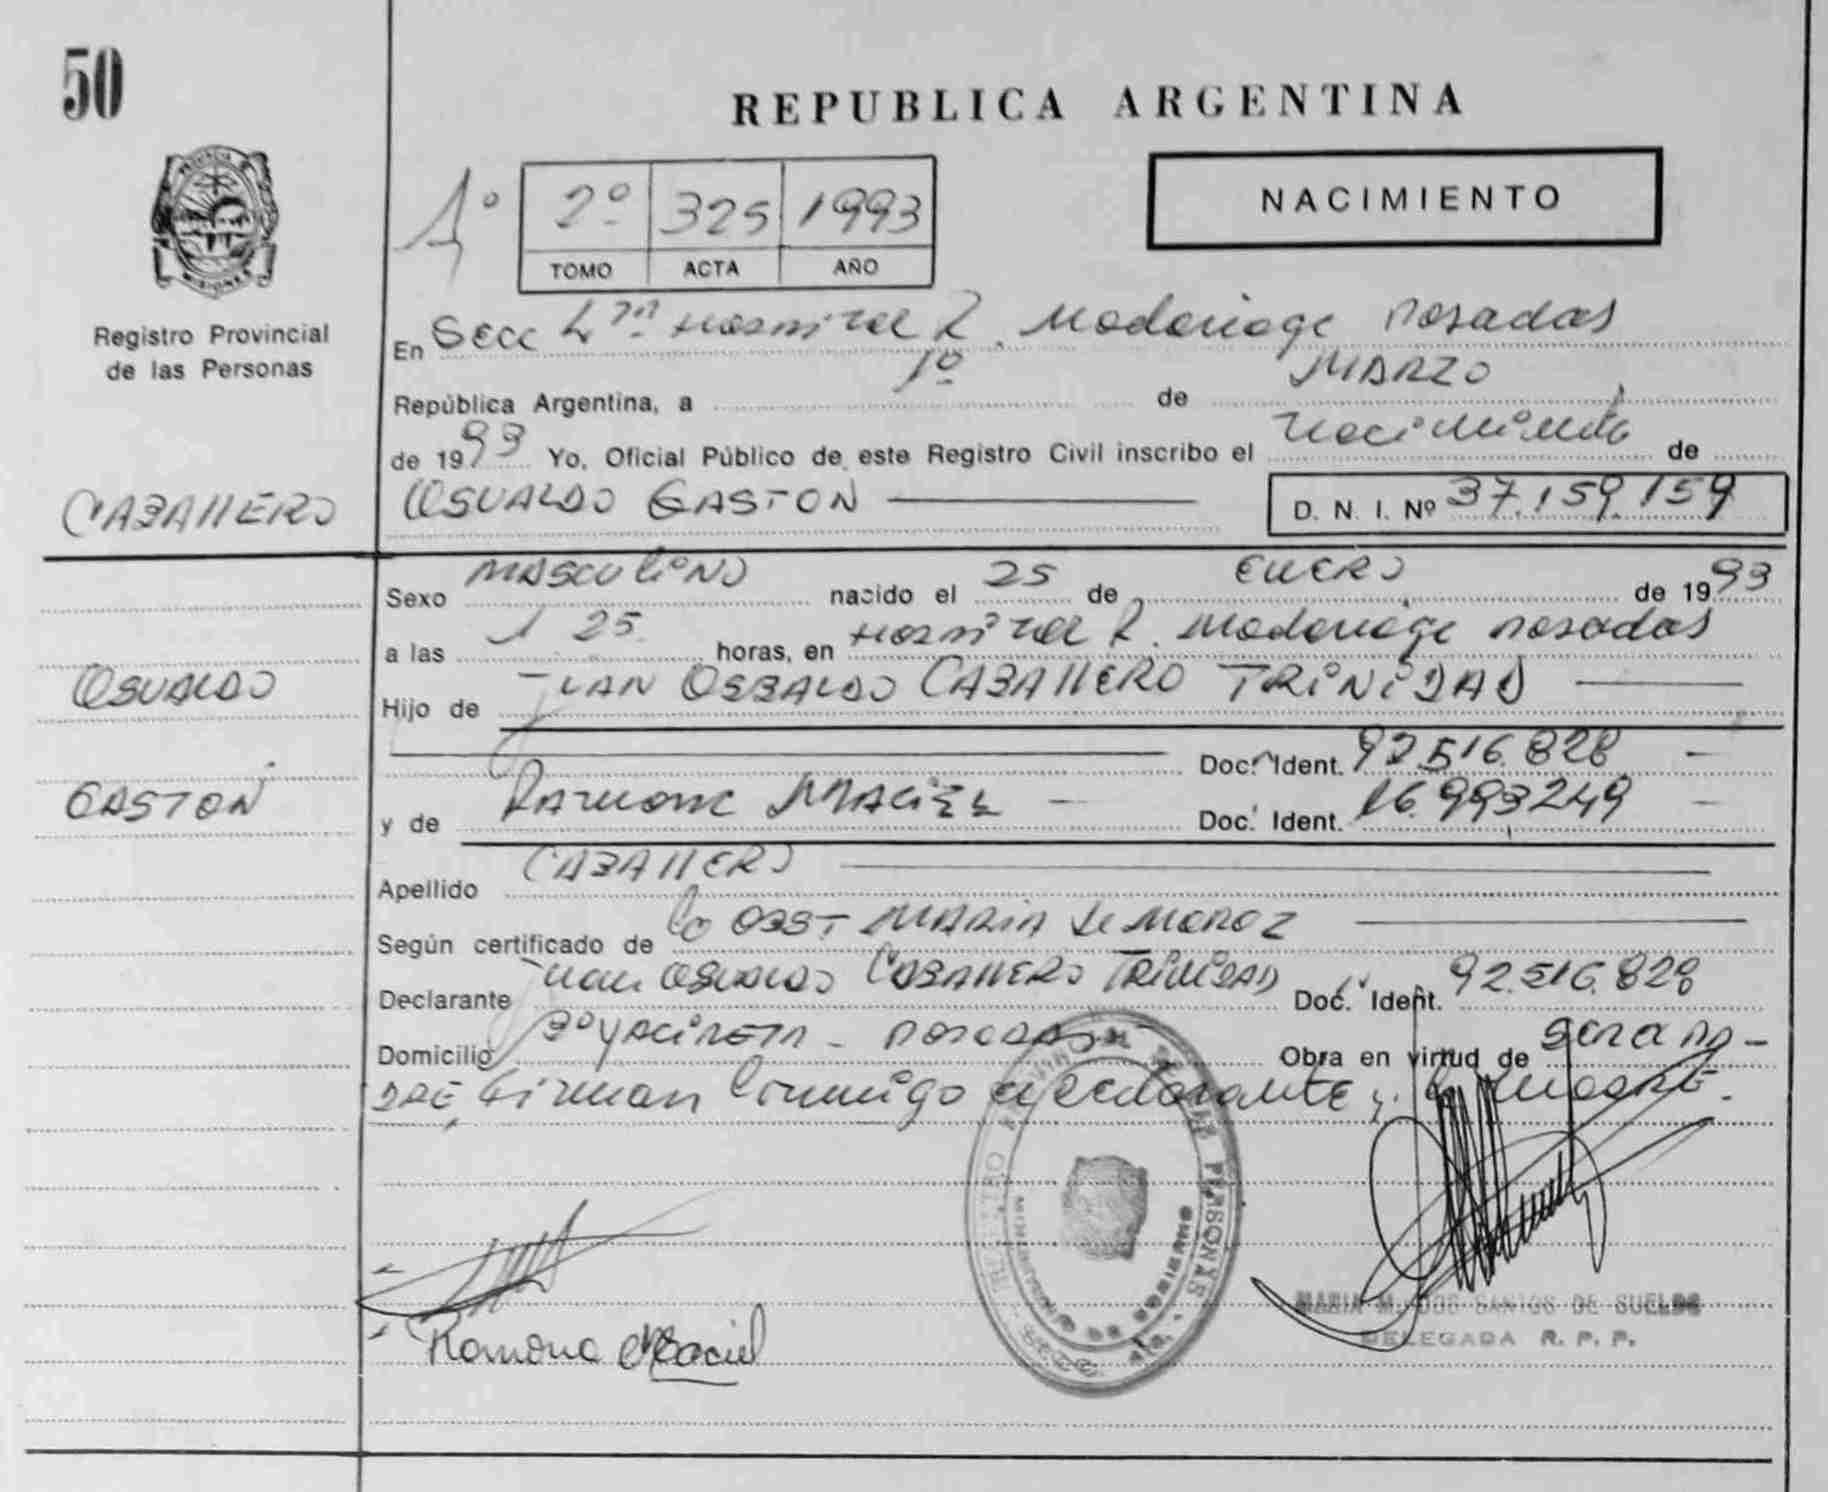 50
REPUBLICA ARGENTINA
NACIMIENTO
1º
2º 325 1993
TOMO ACTA AÑO
PROVINCIA
MISIONES
Registro Provincial
de las Personas
En Secc Hospital R. Madariaga Posadas
República Argentina, a 1º de MARZO
de 1993 Yo, Oficial Público de este Registro Civil inscribo el Nacimiento de
CABALLERO
OSVALDO GASTON
D. N. I. Nº 37.159.159
Sexo MASCULINO nacido el 25 de ENERO de 1993
a las 1 25 horas, en Hospital R. Madariaga Posadas
OSVALDO
Hijo de JUAN OSBALDO CABALLERO TRINIDAD
Doc. Ident. 92.516.828
GASTON
y de Ramona MACIEL Doc. Ident. 16.993249
Apellido CABALLERO
Según certificado de la OBST. MARIA de MOROZ
Declarante Juan OSVALDO CABALLERO TRINIDAD Doc. Ident. 92.516.828
Domicilio Bº YACIRETA - POSADAS Obra en virtud de ser a pa-
dre, firman conmigo el declarante y la madre.
REGISTRO PERSONAS
MINISTERIO DE GOBIERNO
Ramona Maciel
MARIA M. DOS SANTOS DE SUELDO
DELEGADA R. P. P.